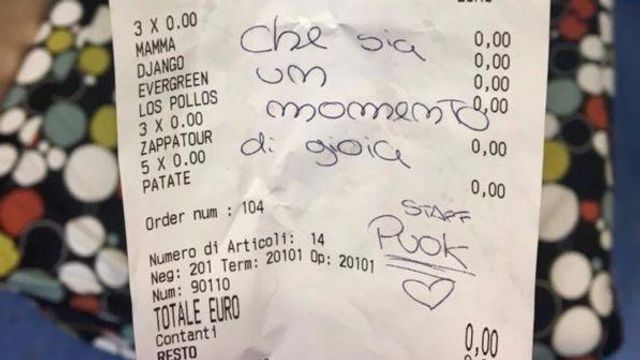 3 X 0.00
MAMMA 0,00
DJANGO 0,00
EVERGREEN 0,00
LOS POLLOS 0,00
3 X 0.00
ZAPPATOUR 0,00
5 X 0.00
PATATE 0,00
che sia
un
momento
di gioia
Order num : 104
STAFF
PUOK
Numero di Articoli: 14
Neg: 201 Term: 20101 Op: 20101
Num: 90110
TOTALE EURO 0,00
Contanti 0,00
RESTO